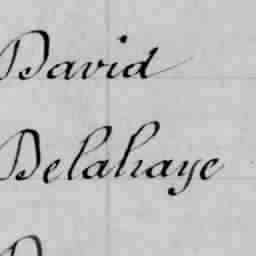 David
Delahaye